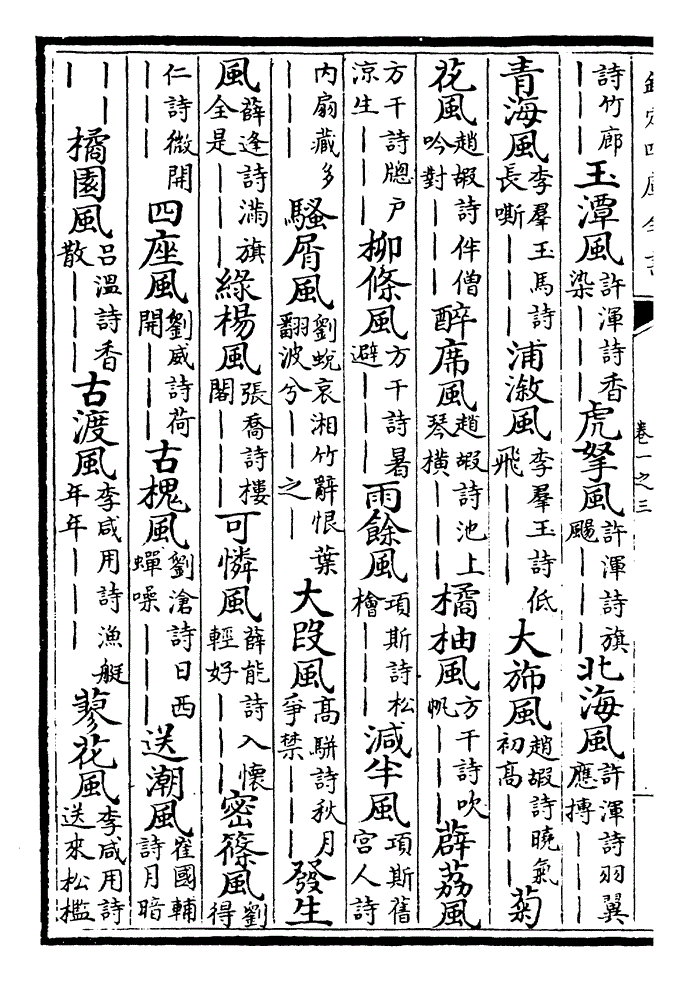 欽定四庫全書
卷一之三
詩竹廊｜｜｜玉潭風許渾詩香染｜｜｜虎拏風許渾詩旗颺｜｜｜北海風許渾詩羽翼應摶｜｜｜
青海風李羣玉馬詩長嘶｜｜｜浦漵風李羣玉詩低飛｜｜｜大斾風趙嘏詩曉氣初高｜｜｜菊
花風趙嘏詩伴僧吟對｜｜｜醉席風趙嘏詩池上琴橫｜｜｜橘柚風方干詩吹帆｜｜｜薜荔風
方干詩牕戶涼生｜｜｜柳條風方干詩暑避｜｜｜雨餘風項斯詩松檜｜｜｜減半風項斯舊宮人詩
內扇藏多｜｜｜騷屑風劉蛻哀湘竹辭恨葉翻波兮｜｜之｜大段風高駢詩秋月爭禁｜｜｜發生
風薛逢詩滿旗全是｜｜｜綠楊風張喬詩樓閣｜｜｜可憐風薛能詩入懷輕好｜｜｜密篠風劉得
仁詩微開｜｜｜四座風劉威詩荷開｜｜｜古槐風劉滄詩日西蟬噪｜｜｜送潮風崔國輔詩月暗
｜｜｜橘園風呂溫詩香散｜｜｜古渡風李咸用詩漁艇年年｜｜｜蓼花風李咸用詩送來松檻